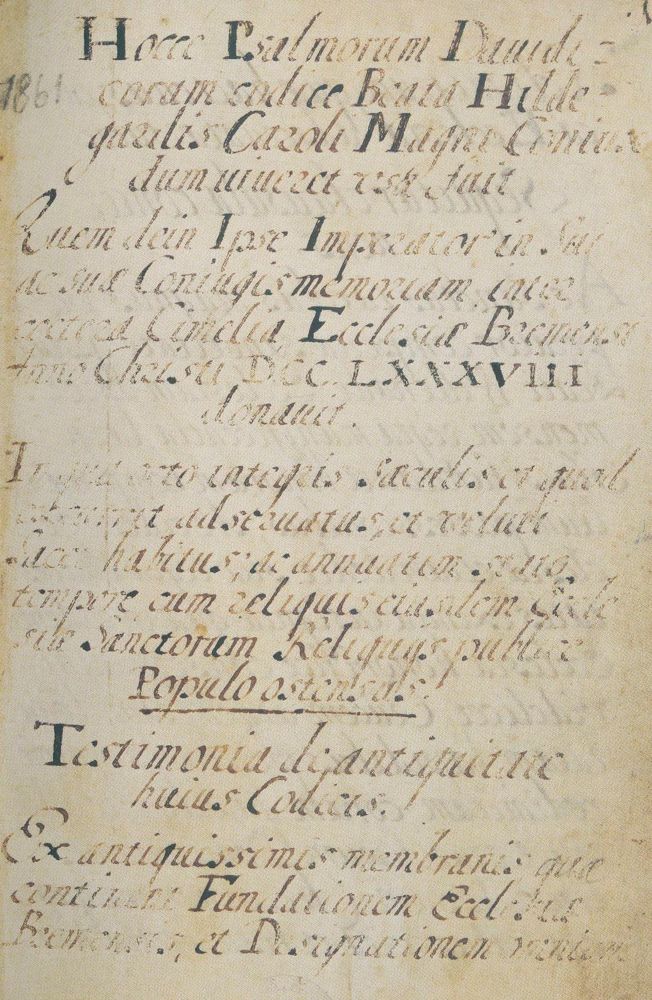 Hocce Psalmorum Dauidi-
corum codice Beata Hilde
gardis Caroli Magni Coniux
dum uiueret usa fuit
1861
Quem dein Ipse Imperator in Sui
ac suæ Coniugis memoriam, inter
cætera Cimelia, Ecclesiæ Bremensi
Anno Christi DCC. LXXXVIII
donauit.
In qua octo integris sæculis et quod
adseruatus, et veluti
Sacer habitus; ac annuatim stato
tempore, cum reliquis eiusdem Eccle
siæ Sanctorum Reliquijs publice
Populo ostensus.
Testimonia de antiquitate
huius Codicis.
Ex antiquissimis membranis, quæ
continent Fundationem Ecclesiæ
Bremensis, et Designationem